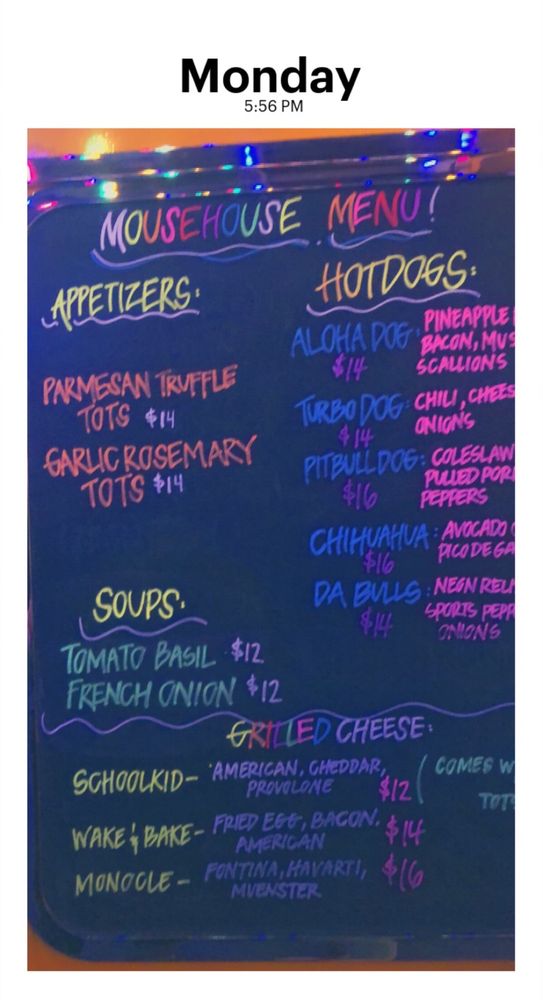 Monday
5:56 PM
MOUSEHOUSE MENU!
APPETIZERS:
PARMESAN TRUFFLE
TOTS $14
GARLIC ROSEMARY
TOTS $14
SOUPS:
TOMATO BASIL $12
FRENCH ONION $12
HOTDOGS:
ALOHA DOG: PINEAPPLE
$14 BACON, MUS
SCALLIONS
TURBO DOG: CHILI, CHEES
$14 ONIONS
PITBULL DOG: COLESLAW
$16 PULLED POR
PEPPERS
CHIHUAHUA: AVOCADO
$16 PICO DE GA
DA BULLS: NEON REL
$14 SPORTS PEPP
ONIONS
GRILLED CHEESE:
SCHOOLKID- AMERICAN, CHEDDAR,
PROVOLONE $12
(COMES W
TOTS
WAKE & BAKE- FRIED EGG, BACON.
AMERICAN $14
MONOCLE- FONTINA, HAVARTI,
MUENSTER $16